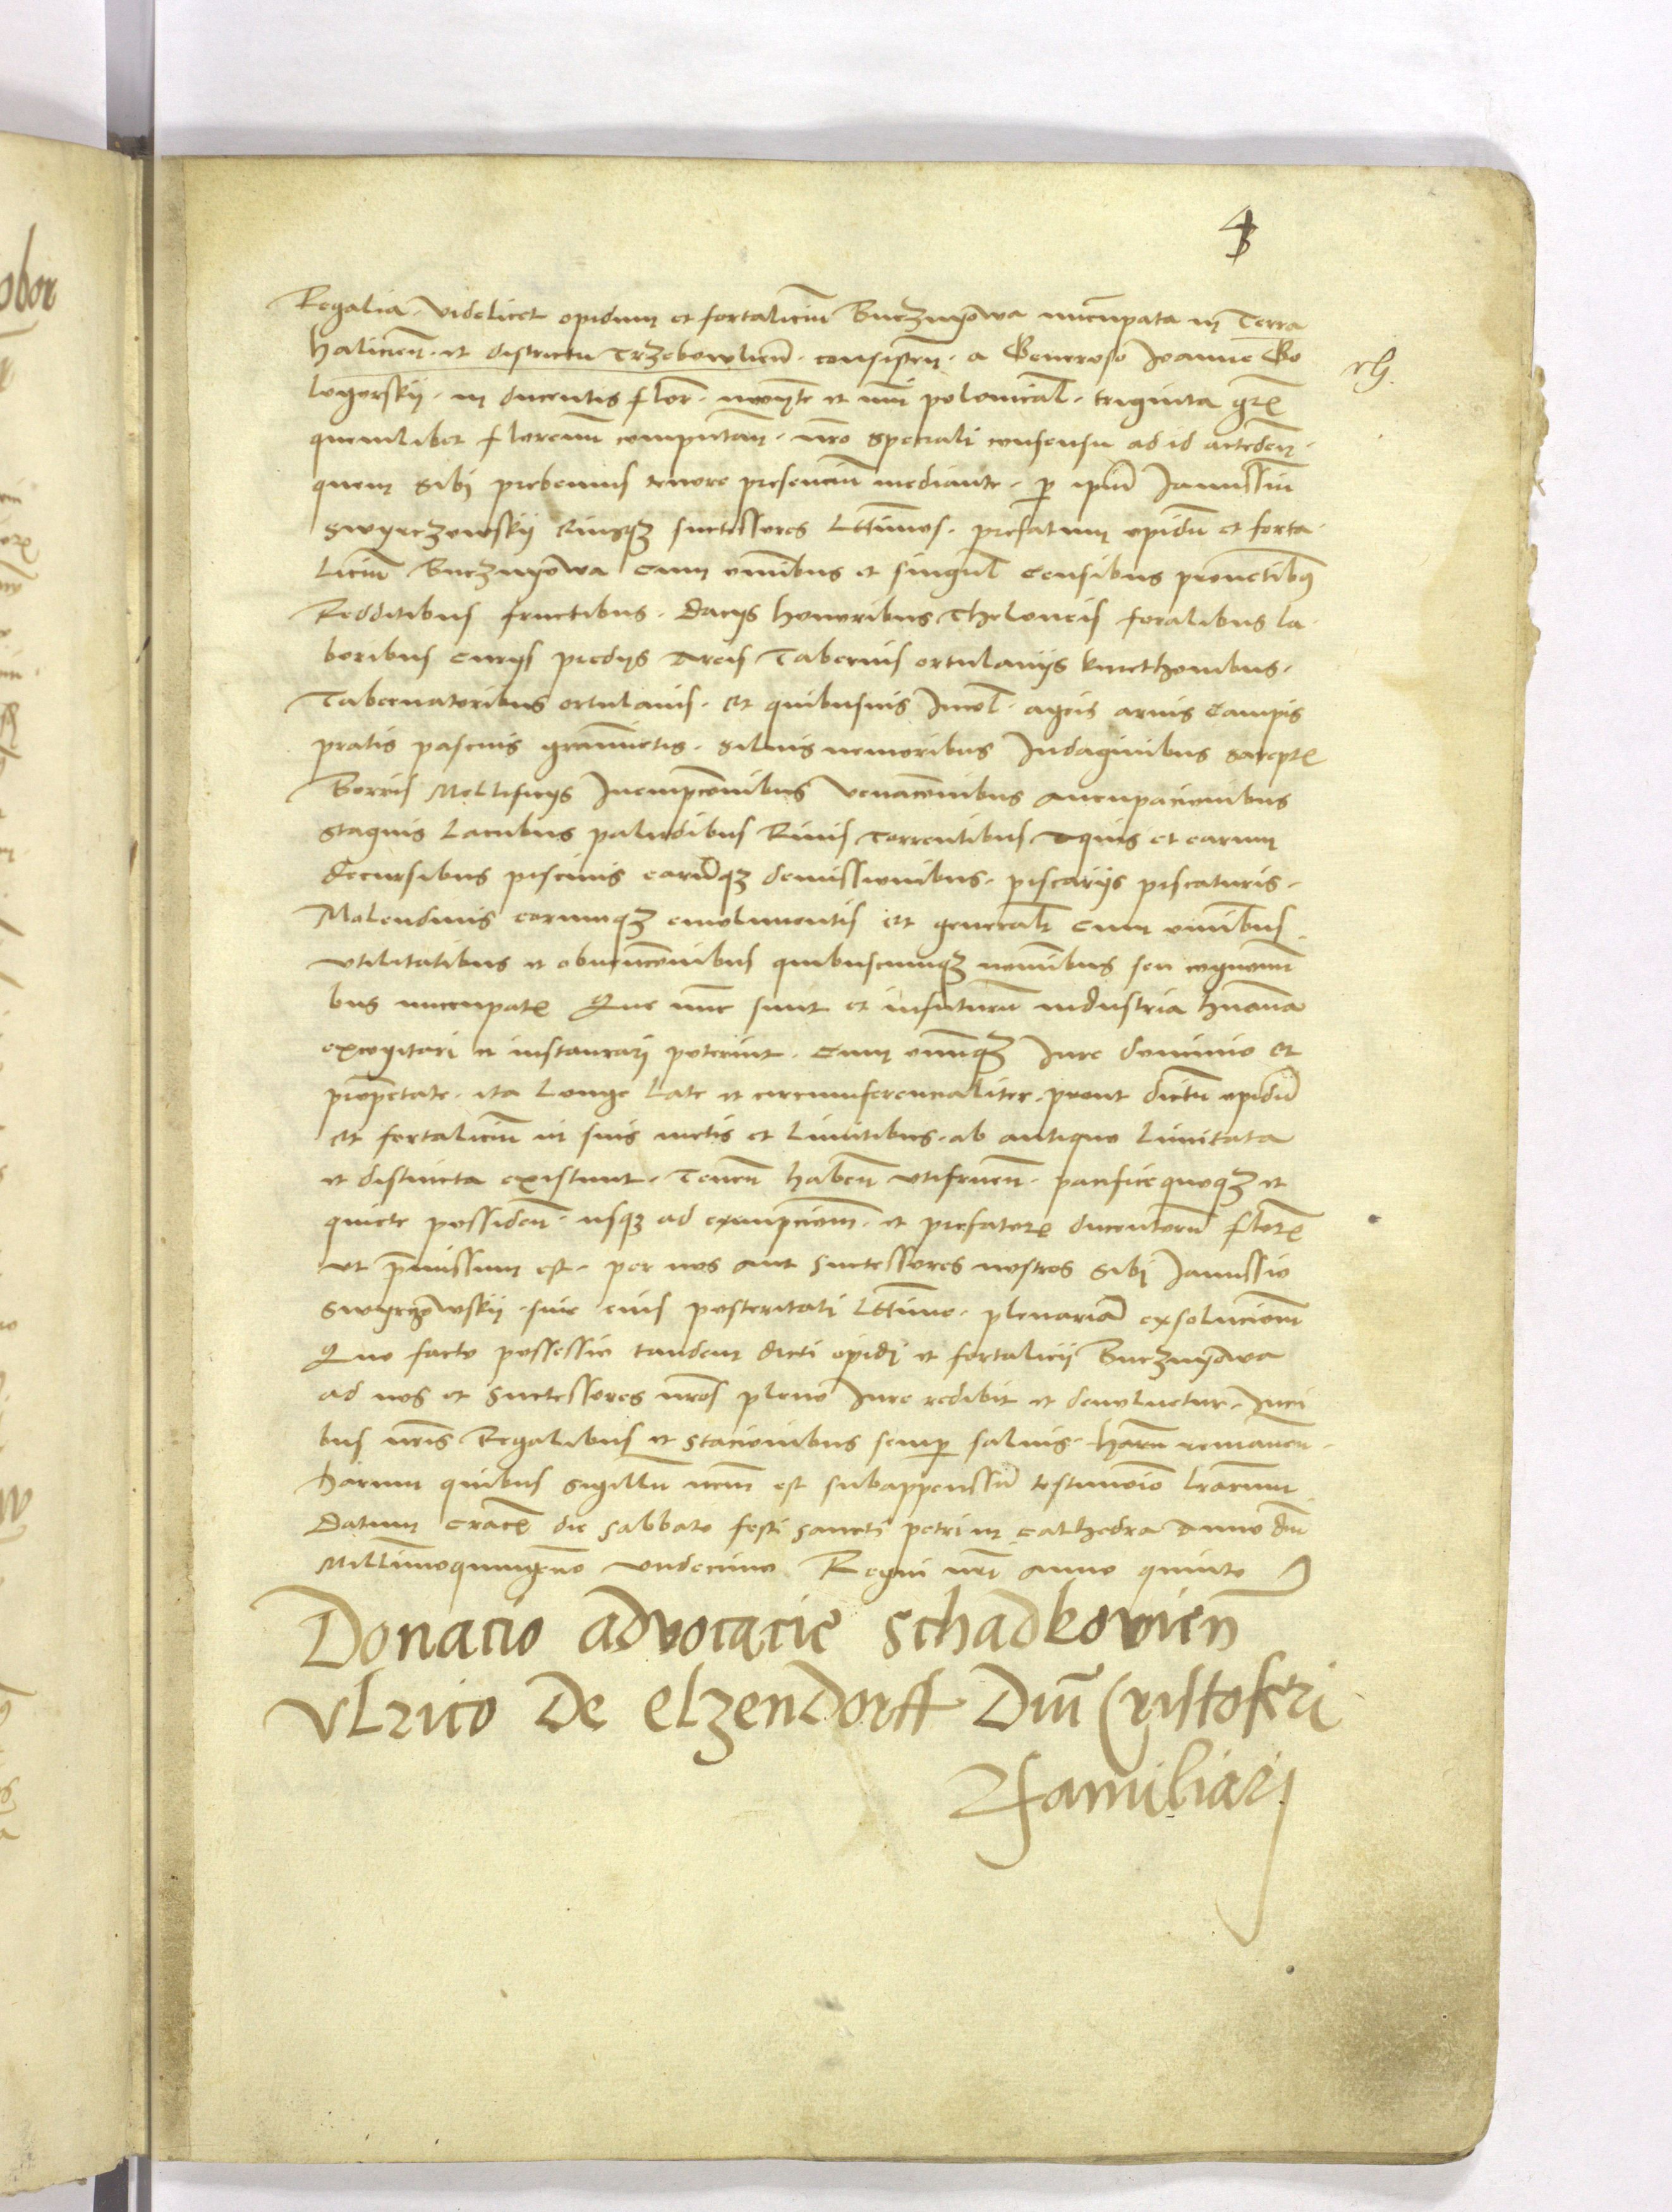 4
Regalia videlicet opidum et fortalicium Bucznyowa nuncupata in Terra
Halicien̄. et districtu Trzebowlien̄. consisten̄. a Generoso Joanne Go
logorskij. in ducentis flor̄. monete et nūi polonical̄. triginta gr̄
quemlibet florenum computan̄. nr̄o speciali consensu ad id acceden̄.
quem sibi prebemus tenore presencium mediante. per ip̄um Janussiū
Swyrczowskij Eiusq3 successores Lt̄imos. prefatum opidū et forta
licium Bucznyowa cum omnibus et singul̄ Censibus provetibus
Redditibus fructibus. Daciis honoribus Theloneis foralibus la
boribus curiis prediis Areis Tabernis ortulaniis kmethonibus.
Tabernatoribus ortulanis. et quibusuis Incol̄. agris aruis Campis
pratis pascuis gramietis. Siluis nemoribus Indaginibus Sarept̄
Borris Mellificijs Venac̄onibus Aucupacionibus
Stagnis Lacubus paludibus Riuis Torrentibus Aquis et earum
decursibus piscinis earūq3 demissionibus. piscariis piscaturis.
Molendinis eorumq3 emolumentis et general̄r Cum om̄ibus
vtilitatibus et obuenc̄onibus quibuscumq3 nominibus seu cognomi
bus nuncupat̄ Que nunc sunt et infuturū industria humana
excogitari et instaurari poterint. Cum om̄iq3 Jure dominio et
propr̄etate. ita Longe Late et circumferencialiter. prout dictū opidū
et fortalicium in suis metis et Limitibus. ab antiquo Limitata
et distincta existunt. Tenen̄ haben̄ vtifruen̄. pacifice quoq3 et
quiete possiden̄. usq3 ad exempcionem. et prefator̄ ducentorū flor̄
vt p̄missum est. per nos aut Successores nostros Sibi Janussio
Swyrczowskij. siue eius posteritati Lt̄ime. plenariā exsolucionem
Quo facto possessio tandem dicti opidi et fortalicii Bucznyowa
ad nos et Successores nr̄os pleno Jure redibit et deuoluetur. Juri
bus nr̄is Regalibus et stacionibus semper saluis. Harū
harum quibus Sigillū nr̄um est subappensū testimonio Lr̄arum
Datum Crac̄ die Sabbato festi Sancti petri in Cathedra Anno dn̄i
Millimoquingen̄o vndecimo Regni nr̄i Anno quinto
Donacio advocacie Schadkovien̄
Vlrico De elzendorff Dn̄i Cristoferi
ffamiliari